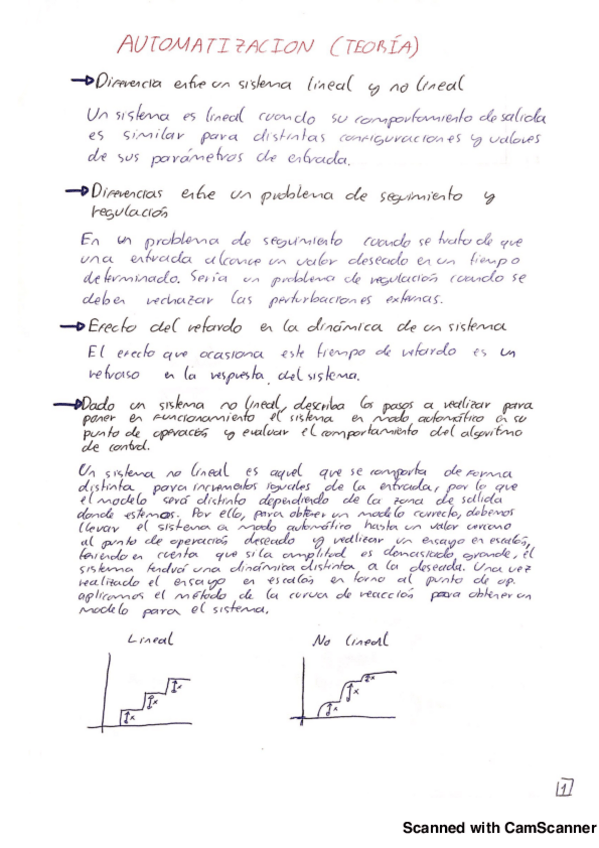 AUTOMATIZACION (TEORÍA)
Diferencia entre un sistema lineal y no lineal
Un sistema es lineal cuando su comportamiento de salida
es similar para distintas configuraciones y valores
de sus parámetros de entrada.
Diferencias entre un problema de seguimiento y
regulación
En un problema de seguimiento cuando se trata de que
una entrada alcance un valor deseado en un tiempo
determinado. Sería un problema de regulación cuando se
deben rechazar las perturbaciones externas.
Efecto del retardo en la dinámica de un sistema
El efecto que ocasiona este tiempo de retardo es un
retraso en la respuesta del sistema.
Dado un sistema no lineal, describa los pasos a realizar para
poner en funcionamiento el sistema en modo automático en su
punto de operación y evaluar el comportamiento del algoritmo
de control.
Un sistema no lineal es aquel que se comporta de forma
distinta para incrementos iguales de la entrada, por lo que
el modelo será distinto dependiendo de la zona de salida
donde estemos. Por ello, para obtener un modelo correcto, debemos
llevar el sistema a modo automático hasta un valor cercano
al punto de operación deseado y realizar un ensayo en escalón,
teniendo en cuenta que si la amplitud es demasiado grande, el
sistema tendrá una dinámica distinta a la deseada. Una vez
realizado el ensayo en escalón en torno al punto de op.
aplicamos el método de la curva de reacción para obtener un
modelo para el sistema.
Lineal
No lineal
x
x
x
x
x
x
1
Scanned with CamScanner